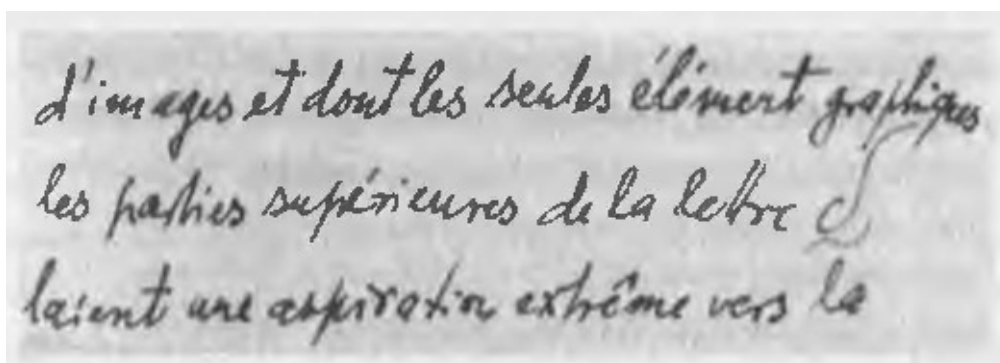 d'images et dont les seules élément graphiques
les parties supérieures de la lettre
laient une aspiration extrême vers la